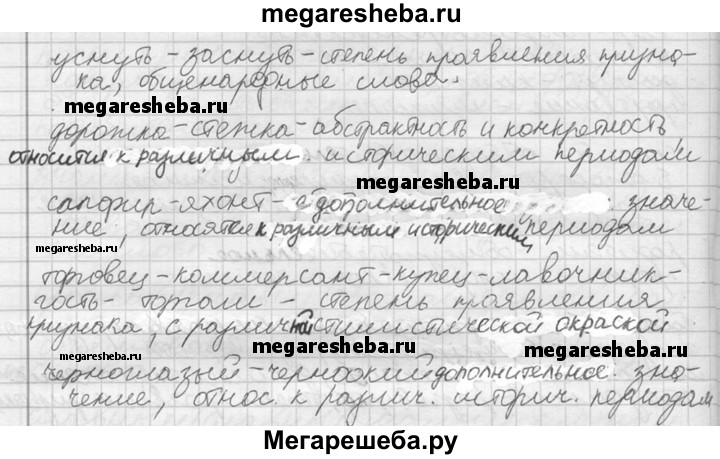 megaresheba.ru
уснуть - заснуть - степень проявления призна-
ка, общенародные слова.
megaresheba.ru
дорожка - стежка - абстрактность и конкретность,
относится к различным историческим периодам
megaresheba.ru
сапфир - яхонт - с дополнительное значе-
ние, относятся к различным историческим периодам
megaresheba.ru
торговец - коммерсант - купец - лавочник -
гость - торгаш - степень проявления
признака, с различной стилистической окраской
megaresheba.ru megaresheba.ru
черноглазый - черноокий дополнительное зна-
чение, относ. к различ. историч. периодам
megaresheba.ru
Мегарешеба.ру